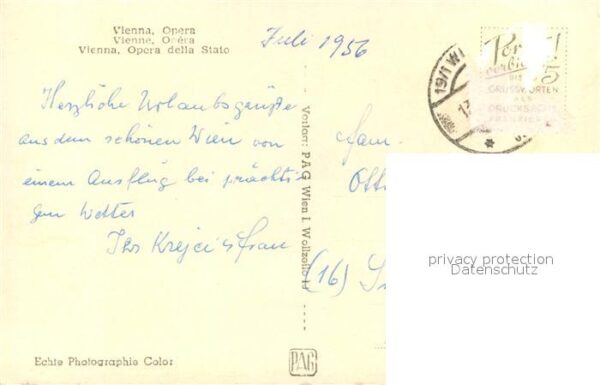 Vienna, Opera
Vienne, Opéra
Vienna, Opera della Stato
Juli 1956
Herzliche Urlaubsgrüsse
aus dem schönen Wien von
einem Ausflug bei prächti-
gen Wetter
Ihr Krejci u Frau
Verlag: PAG Wien I, Wollzeile
Fam.
Otto
(16)
19/1 WI
GRUSSWORTEN
ALS
DRUCKSACHE
privacy protection
Datenschutz
Echte Photographie Color
PAG